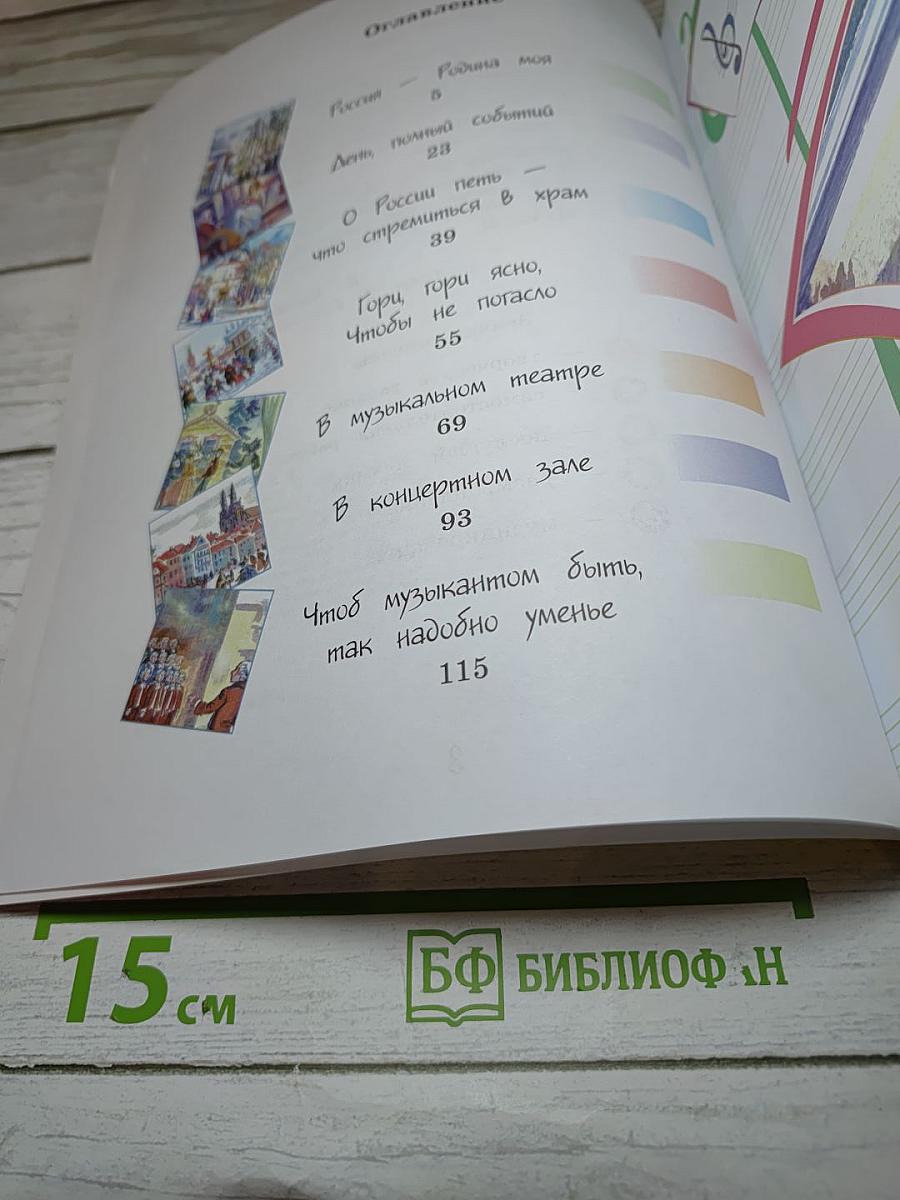 Оглавление
Россия — Родина моя
5
День, полный событий
23
О России петь —
что стремиться в храм
39
Гори, гори ясно,
Чтобы не погасло
55
В музыкальном театре
69
В концертном зале
93
Чтоб музыкантом быть,
так надобно уменье
115
15 см
БФ БИБЛИОФАН